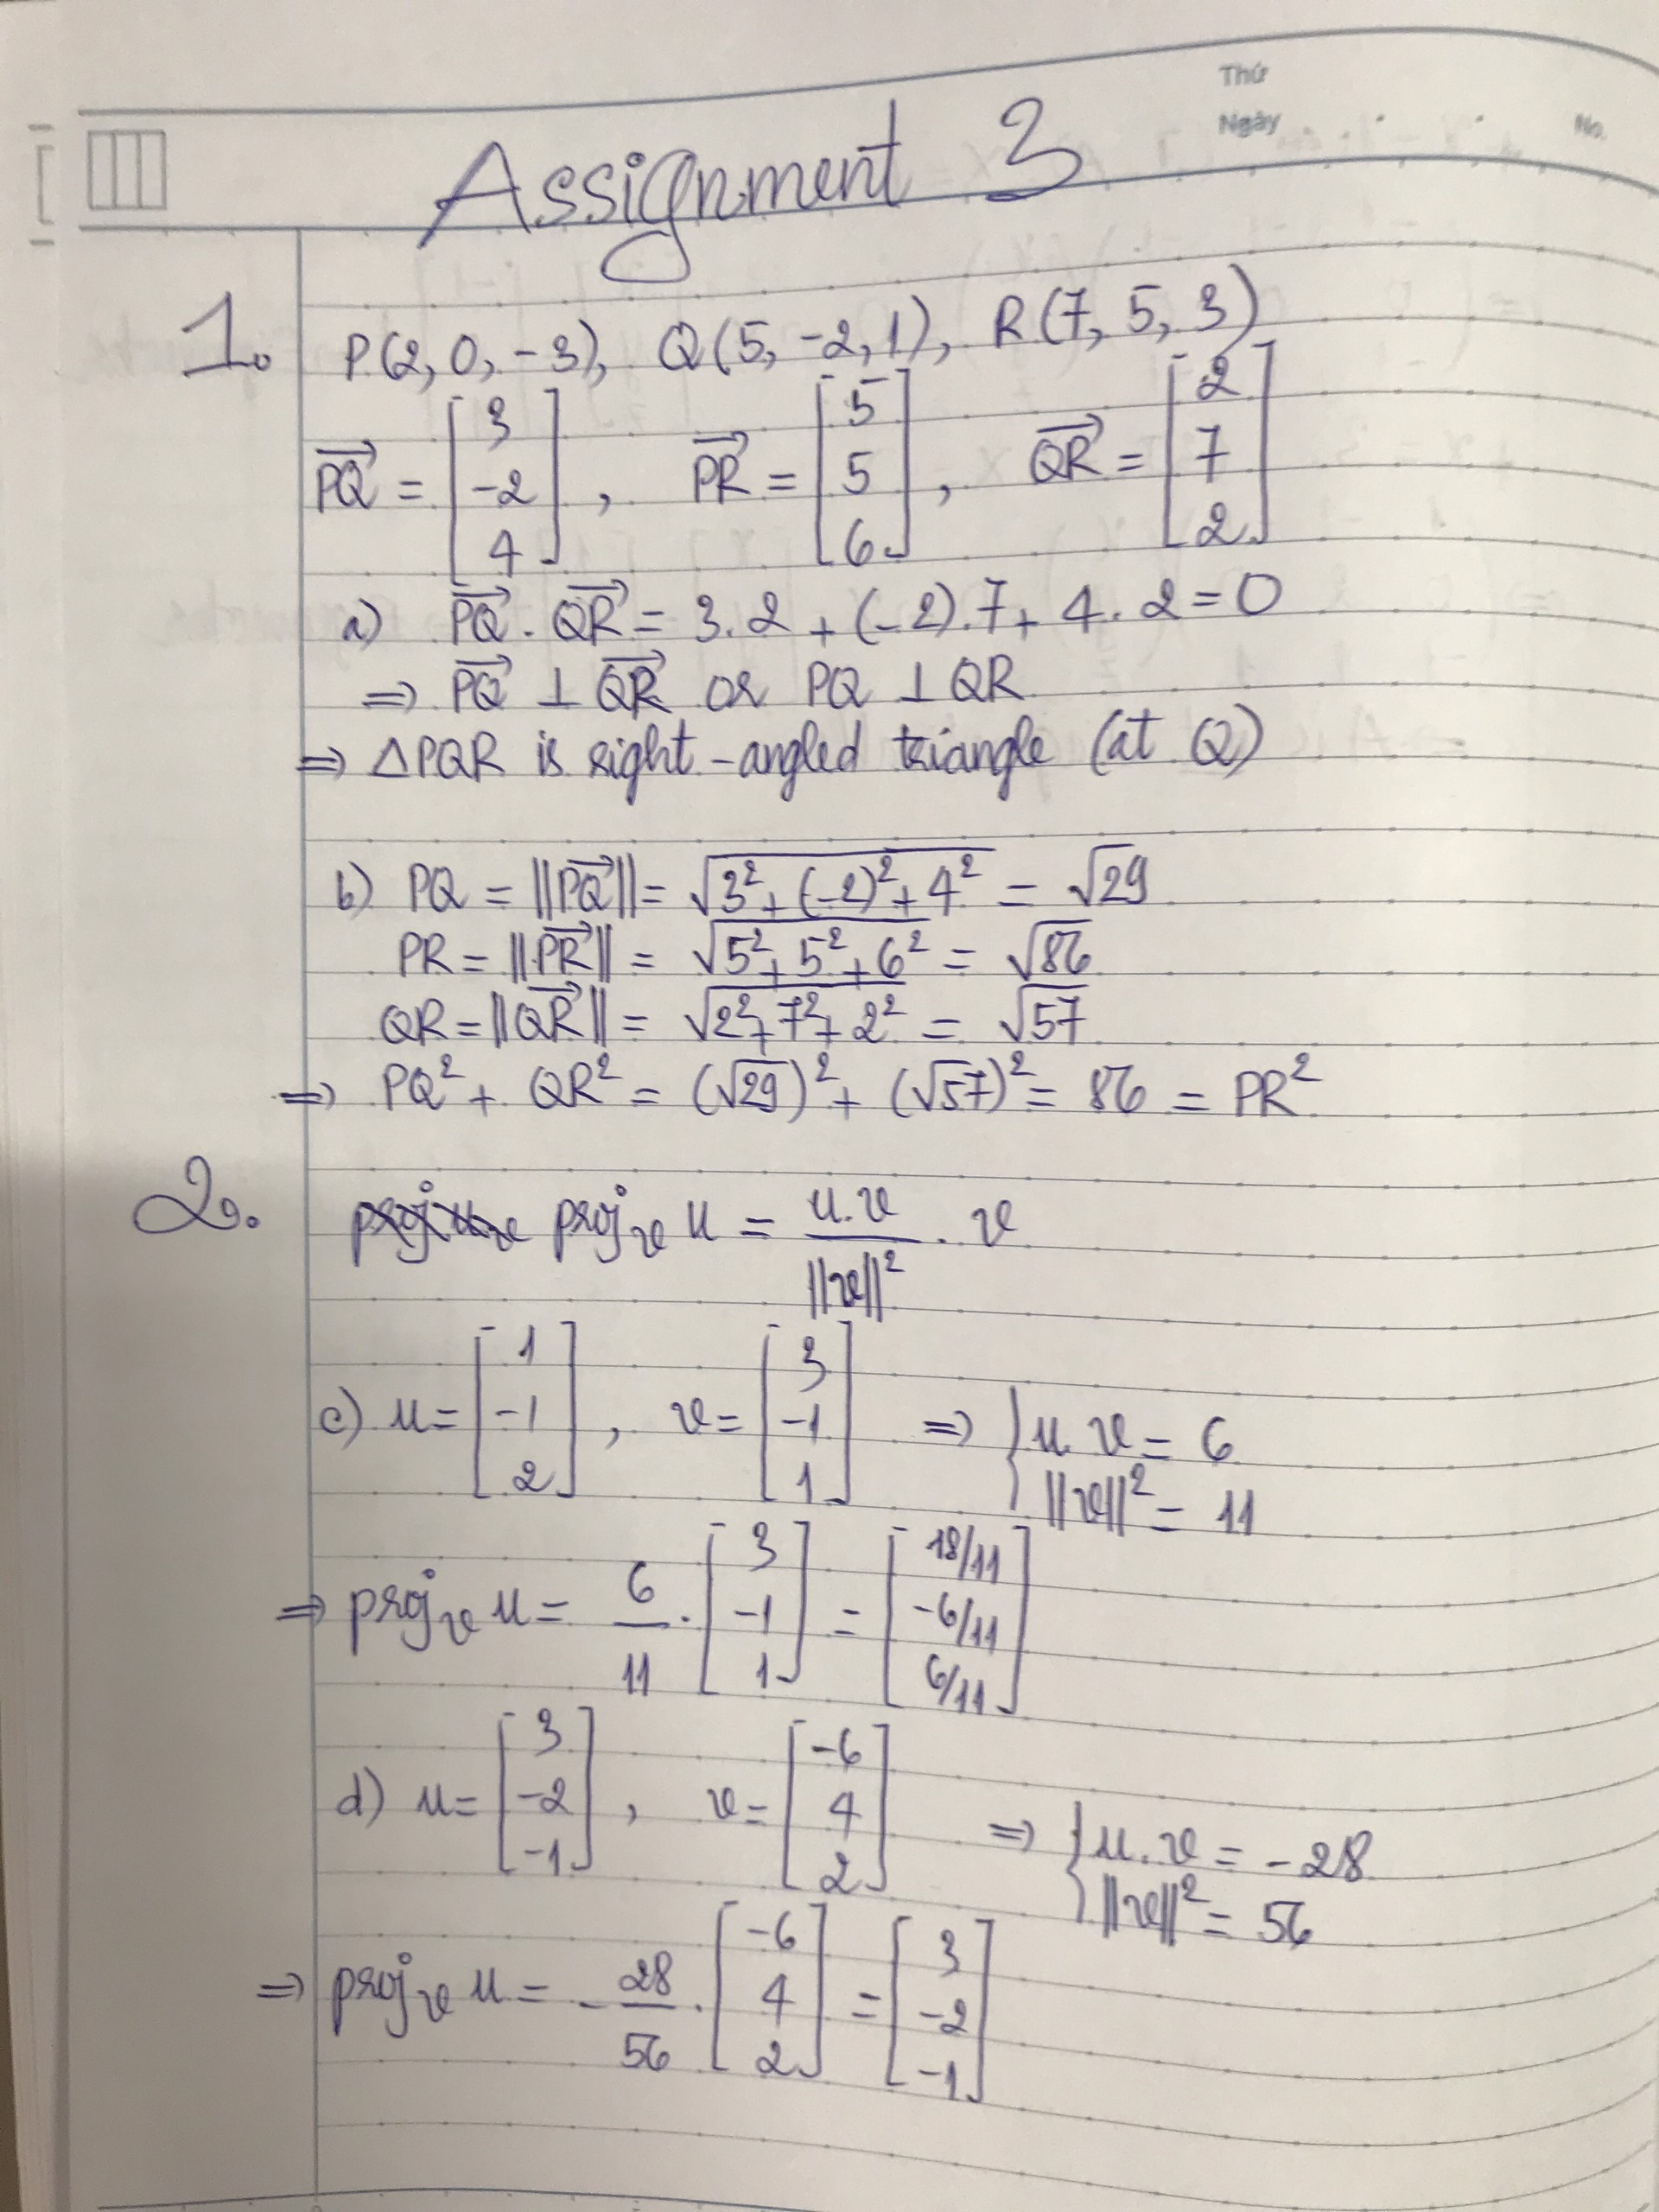 Thứ
Ngày
No.
Assignment 3
1. P(2, 0, -3), Q(5, -2, 1), R(7, 5, 3)
PQ→ = [3 -2 4], PR→ = [5 5 6], QR→ = [2 7 2]
a) PQ→ . QR→ = 3.2 + (-2).7 + 4.2 = 0
⇒ PQ→ ⊥ QR→ or PQ ⊥ QR
⇒ ΔPQR is right-angled triangle (at Q)
b) PQ = ||PQ→|| = √(3² + (-2)² + 4²) = √29
PR = ||PR→|| = √(5² + 5² + 6²) = √86
QR = ||QR→|| = √(2² + 7² + 2²) = √57
⇒ PQ² + QR² = (√29)² + (√57)² = 86 = PR²
2. proj_v u = u.v / ||v||² . v
c) u = [1 -1 2], v = [3 -1 1] ⇒ { u.v = 6
||v||² = 11
⇒ proj_v u = 6/11 . [3 -1 1] = [18/11 -6/11 6/11]
d) u = [3 -2 -1], v = [-6 4 2] ⇒ { u.v = -28
||v||² = 56
⇒ proj_v u = - 28/56 . [-6 4 2] = [3 -2 -1]